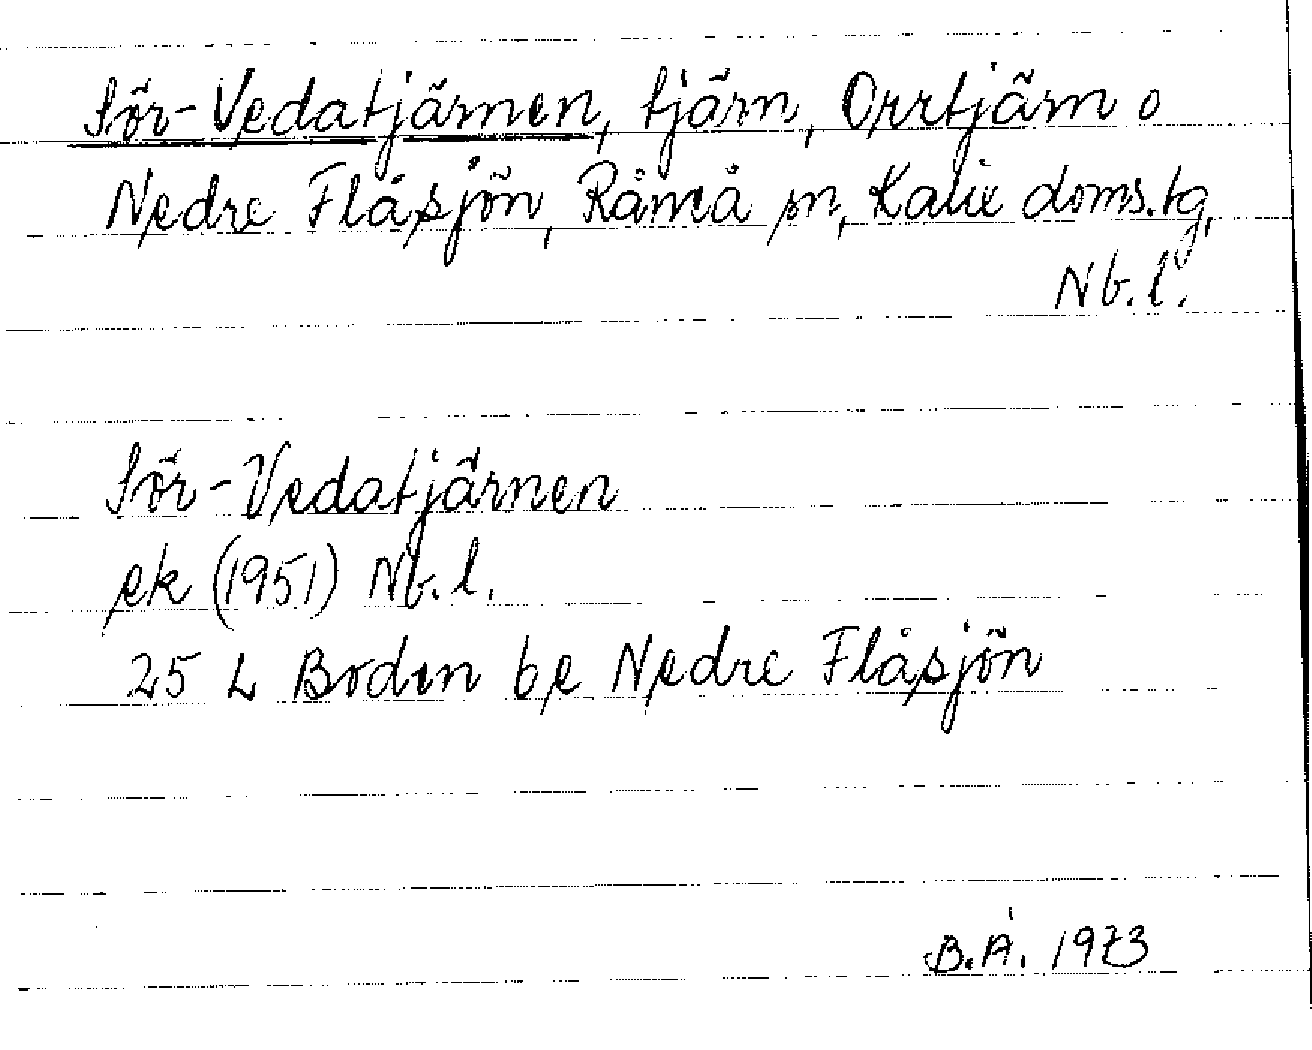 Sör-Vedatjärnen, tjärn, Orrtjärn o
Nedre Flåsjön, Råneå sn, Kalix doms.tg,
Nb.l.
Sör-Vedatjärnen
ek (1951) Nb.l.
25 L Boden be Nedre Flåsjön
B.Å. 1973